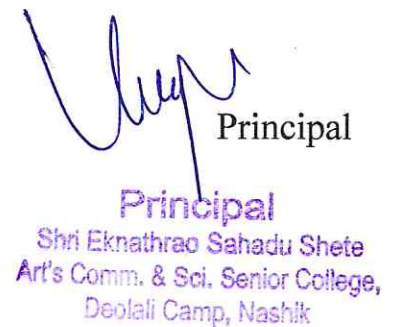 Principal
Principal
Shri Eknathrao Sahadu Shete
Art's Comm. & Sci. Senior College,
Deolali Camp, Nashik